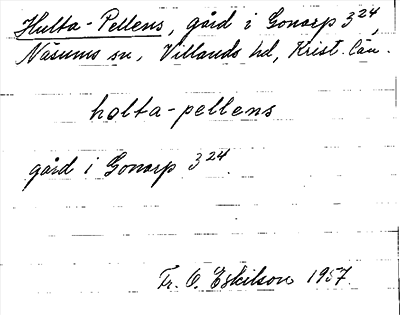 Hulta-Pellens, gård i Gonarp 3²⁴,
Näsums sn, Villands hd, Krist. län.
holta-pellens
gård i Gonarp 3²⁴.
Tr. O. Eskilson 1957.